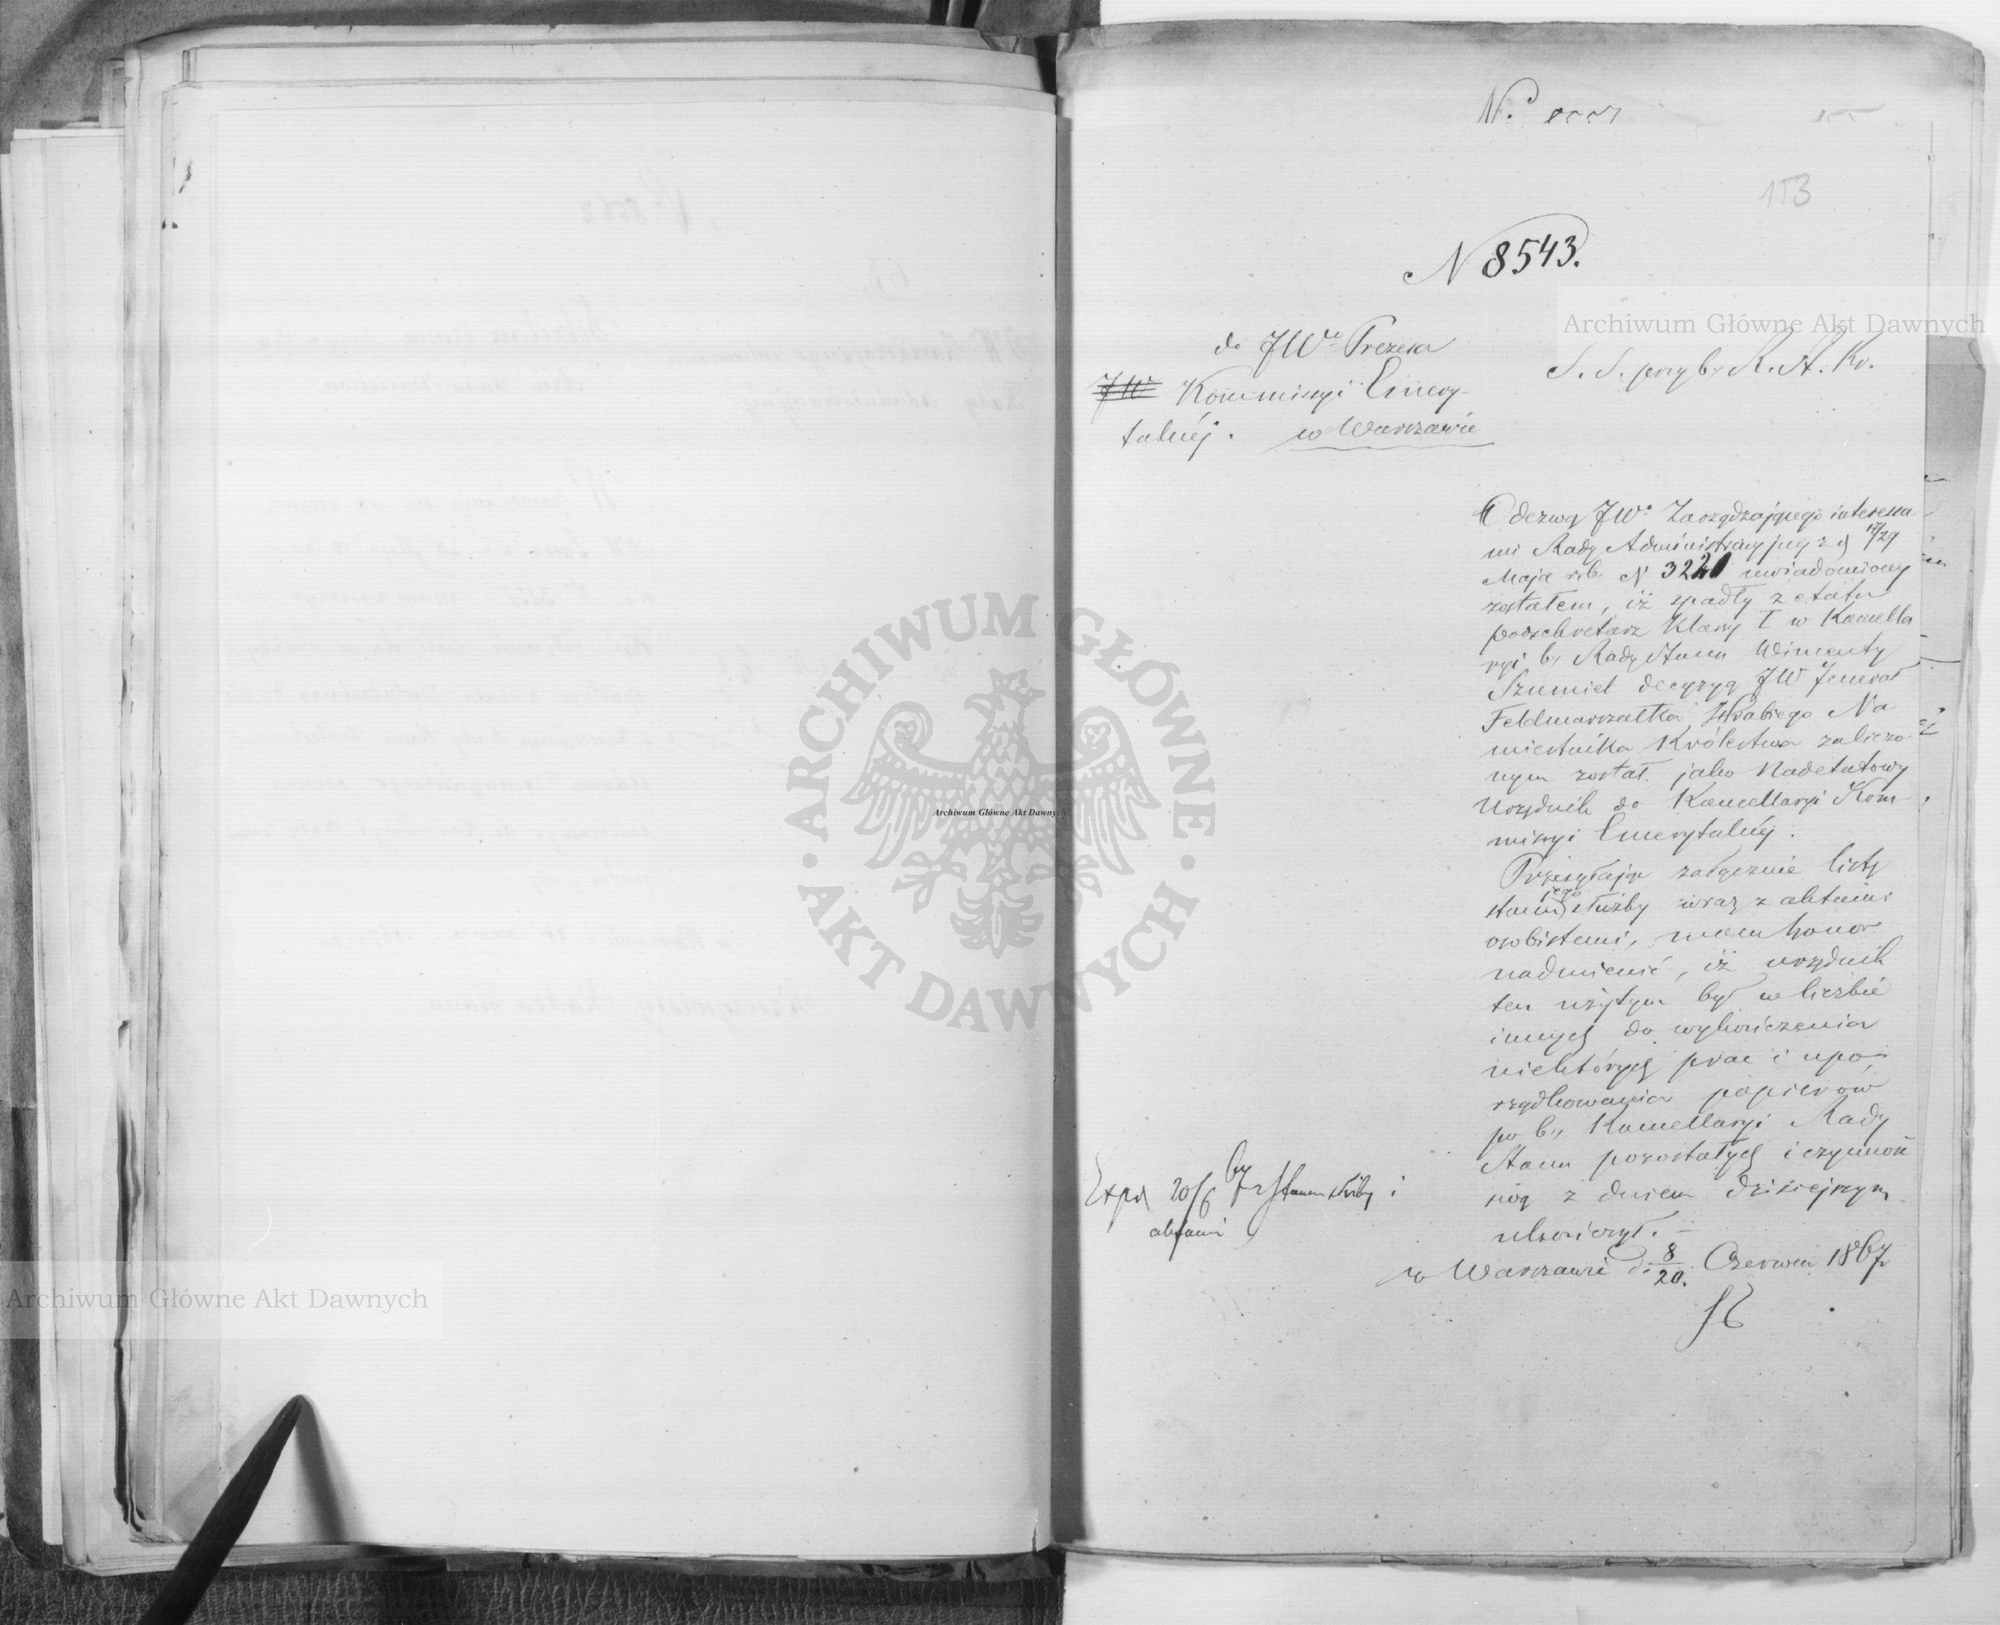 153
N 8543.
do JWo Prezesa
Kommissyi Emery-
talnéj. w Warszawie
S. S. przy b. R. A. Kr.
Odezwą JWo Zarządzającego interessa
mi Rady Administracyjnéj z d 17/29
Maja r.b. N 3221 uwiadomiony
zostałem, iż spadły z etatu
podsekretarz Klassy I w Kancella
ryi b. Rady Stanu Wincenty
Szumiel decyzyą JW Jenerał
Feldmarszałka Hrabiego Na-
miestnika Królestwa zaliczo-
nym został jako Nadetatowy
Urzędnik do Kancellaryi Kom-
missyi Emerytalnéj.
Przesyłając załącznie listę
stanu jego służby wraz z aktami
osobistemi, mam honor
nadmienić, iż urzędnik
ten użytym był w liczbie
innych do wykończenia
niektórych prac i upo-
rządkowania papierów
po b. Kancellaryi Rady
Stanu pozostałych i czynnoś
nią z dniem dzisiejszym
ukończył.
w Warszawie d. 8/20. Czerwca 1867
Exped 20/6 67 z stanem służby i
aktami
Archiwum Główne Akt Dawnych
Archiwum Główne Akt Dawnych
Archiwum Główne Akt Dawnych
· ARCHIWUM GŁÓWNE · AKT DAWNYCH